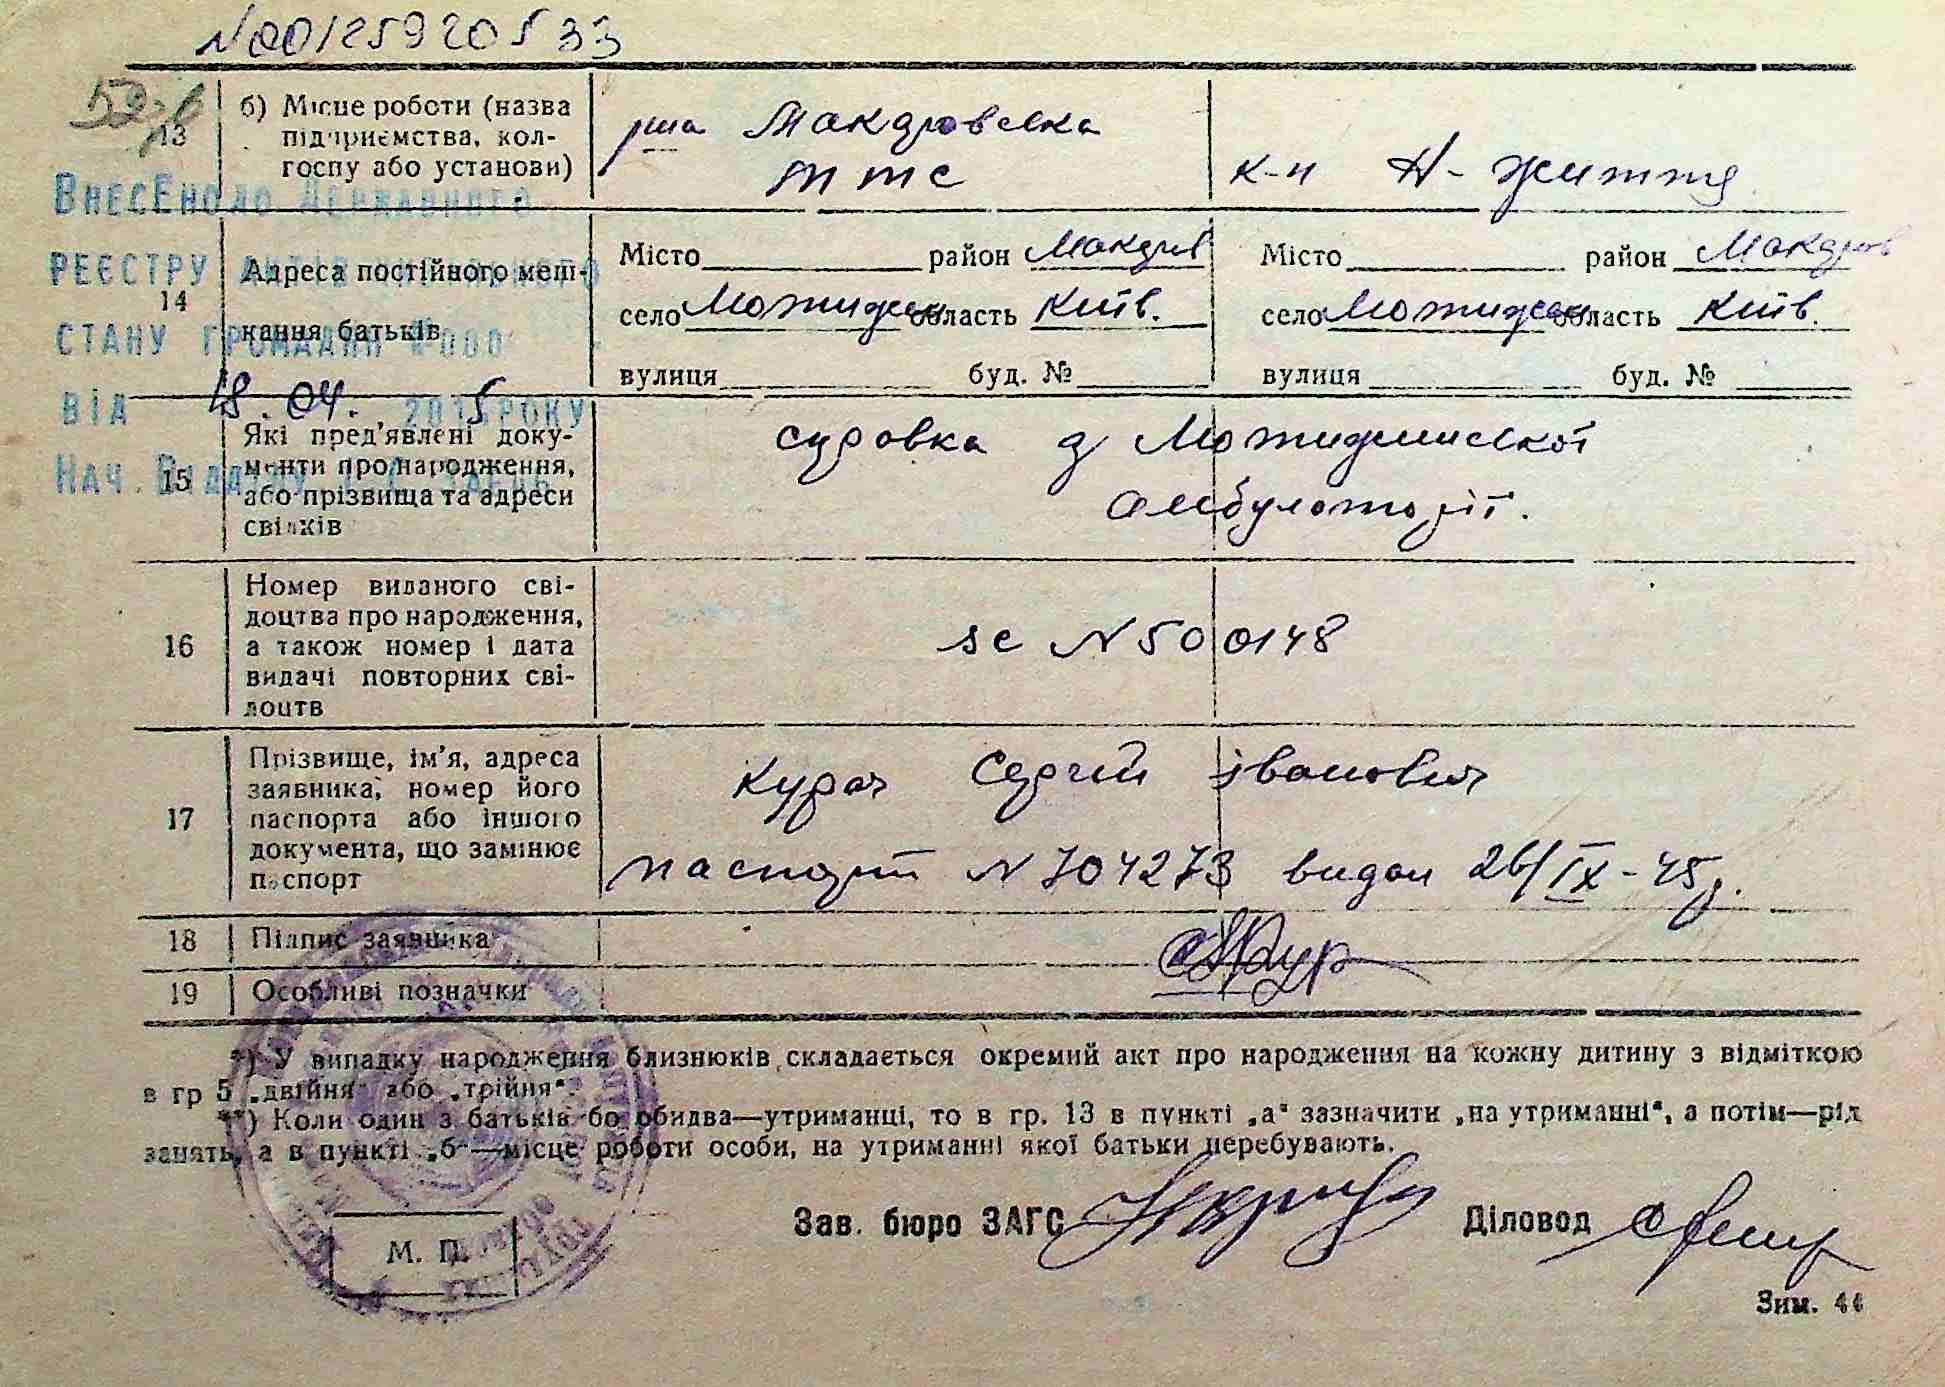 N00125920533
13
б) Місце роботи (назва
підприємства, кол-
госпу або установи)
Макаровска
МТС
к-п Н-життя
ВНЕСЕНО ДО ДЕРЖАВНОГО
РЕЄСТРУ АКТІВ ЦИВІЛЬНОГО
СТАНУ ГРОМАДЯН №000
ВІД 18.04. 2015 РОКУ
НАЧ. ВІДДІЛУ
14
Адреса постійного меш-
кання батьків
Місто район Макарів
село Мотижин область Київ.
вулиця буд. №
Місто район Макаров
село Мотижин область Київ.
вулиця буд. №
15
Які пред'явлені доку-
менти про народження,
або прізвища та адреси
свідків
справка з Мотижинської
амбулоторії.
16
Номер виданого сві-
доцтва про народження,
а також номер і дата
видачі повторних сві-
доцтв
N 500148
17
Прізвище, ім'я, адреса
заявника, номер його
паспорта або іншого
документа, що замінює
паспорт
Курач Сергій Іванович
паспорт N 704273 видан 26/IX-45р.
18 Підпис заявника
19 Особливі позначки
*) У випадку народження близнюків складається окремий акт про народження на кожну дитину з відміткою
в гр 5 „двійня" або „трійня".
**) Коли один з батьків бо обидва—утриманці, то в гр. 13 в пункті „а" зазначити „на утриманні", а потім—рід
занять, а в пункті „б"—місце роботи особи, на утриманні якої батьки перебувають.
Зав. бюро ЗАГС Діловод
М. П.
Зим. 44